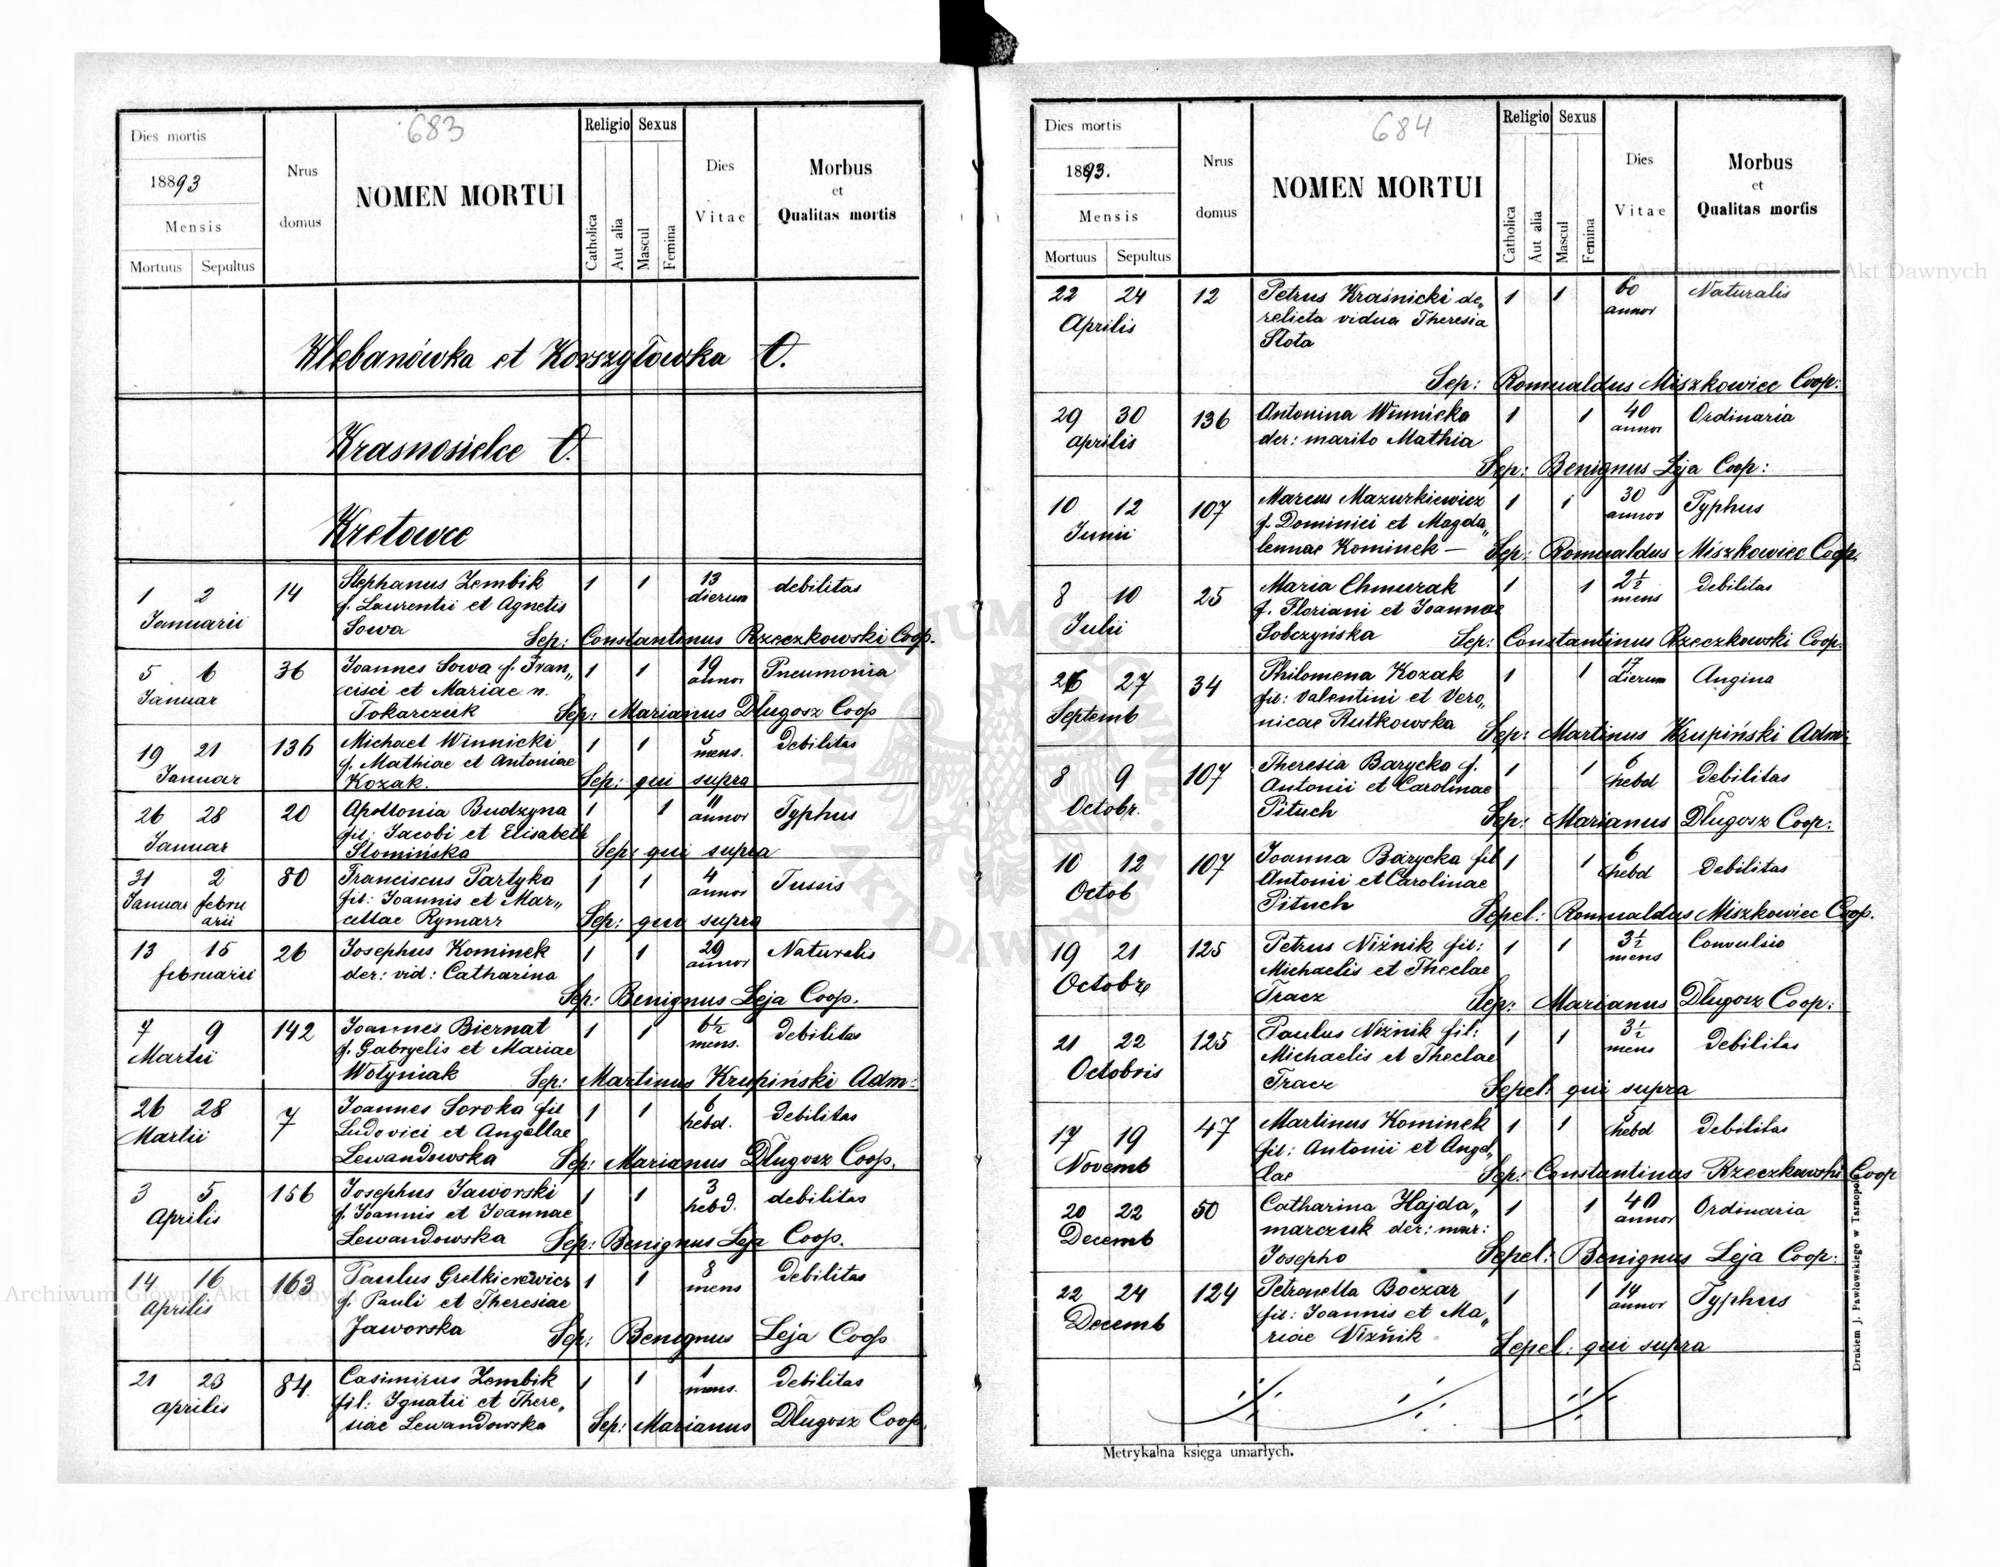 683
Dies mortis
1893
Mensis
Mortuus Sepultus
Nrus domus
NOMEN MORTUI
Religio Sexus
Catholica Aut alia Mascul Femina
Dies Vitae
Morbus
et
Qualitas mortis
Klebanówka et Korszyłowka O.
Krasnosielce O.
Kretowce
1 2 14 Stephanus Zembik 1 1 13 debilitas
Januarii f. Laurentii et Agnetis dierum
Sowa Sep: Constantinus Rzeczkowski Coop.
5 6 36 Joannes Sowa f. Fran„ 1 1 19 Pneumonia
Januar cisci et Mariae n. annor
Tokarczuk Sep: Marianus Długosz Coop
19 21 136 Michael Winnicki 1 1 5 Debilitas
Januar f. Mathiae et Antoniae mens.
Kozak. Sep: qui supra
26 28 20 Apollonia Budzyna 1 1 11 Typhus
Januar fil: Jacobi et Elisabeth annor
Słomińska Sep: qui supra
31 2 80 Franciscus Partyka 1 1 4 Tussis
Januar febru fil: Joannis et Mar„ annor
arii cellae Rymarz Sep: qui supra
13 15 26 Josephus Kominek 1 1 29 Naturalis
februarii der: vid: Catharina annor
Sep: Benignus Leja Coop.
7 9 142 Joannes Biernat 1 1 6½ Debilitas
Martii f. Gabryelis et Mariae mens.
Wołyniak Sep: Martinus Krupiński Adm:
26 28 7 Joannes Soroka fil 1 1 6 Debilitas
Martii Ludovici et Angellae hebd.
Lewandowska Sep: Marianus Długosz Coop.
3 5 156 Josephus Jaworski 1 1 3 debilitas
Aprilis f. Joannis et Joannae hebd.
Lewandowska Sep: Benignus Leja Coop.
14 16 163 Paulus Gretkierewicz 1 1 8 Debilitas
Aprilis f. Pauli et Theresiae mens
Jaworska Sep: Benignus Leja Coop
21 23 84. Casimirus Zembik 1 1 1 Debilitas
aprilis fil: Ignatii et There„ mens.
siae Lewandowska Sep: Marianus Długosz Coop.
684
Dies mortis
1893.
Mensis
Mortuus Sepultus
Nrus domus
NOMEN MORTUI
Religio Sexus
Catholica Aut alia Mascul Femina
Dies Vitae
Morbus
et
Qualitas mortis
22 24 12 Petrus Kraśnicki de„ 1 1 60 Naturalis
Aprilis relicta vidua Theresia annor
Słota
Sep: Romualdus Miszkowiec Coop:
29 30 136 Antonina Winnicka 1 1 40 Ordinaria
aprilis der: marito Mathia annor
Sep: Benignus Leja Coop:
10 12 107 Marcus Mazurkiewicz 1 1 30 Typhus
Junii f. Dominici et Magda„ annor
lennae Kominek — Sep: Romualdus Miszkowiec Coop.
8 10 25 Maria Chmurak 1 1 2½ Debilitas
Julii f. Floriani et Joannae mens
Sobczyńska Sep: Constantinus Rzeczkowski Coop.
26 27 34 Philomena Kozak 1 1 17 Angina
Septemb fil: Valentini et Vero„ dierum
nicae Rutkowska Sep: Martinus Krupiński Adm:
8 9 107 Theresia Barycka f. 1 1 6 Debilitas
Octobr. Antonii et Carolinae hebd
Pituch Sep: Marianus Długosz Coop:
10 12 107 Joanna Barycka fil 1 1 6 Debilitas
Octob Antonii et Carolinae hebd
Pituch Sepel: Romualdus Miszkowiec Coop.
19 21 125 Petrus Niźnik fil: 1 1 3½ Convulsio
Octobr Michaelis et Theclae mens
Tracz Sep: Marianus Długosz Coop:
21 22 125 Paulus Niźnik fil: 1 1 3½ Debilitas
Octobris Michaelis et Theclae mens
Tracz Sepel: qui supra
17 19 47 Martinus Kominek 1 1 5 Debilitas
Novemb fil: Antonii et Angel„ hebd
lae Sep: Constantinus Rzeczkowski Coop
20 22 50 Catharina Hajda„ 1 1 40 Ordinaria
Decemb marczuk der: mar: annor
Josepho Sepel: Benignus Leja Coop:
22 24 124 Petronella Boczar 1 1 14 Typhus
Decemb fil: Joannis et Ma„ annor
riae Niźnik Sepel: qui supra
Metrykalna księga umarłych.
Drukiem J. Pawłowskiego w Tarnopolu
Archiwum Główne Akt Dawnych
Archiwum Główne Akt Dawnych
ARCHIWUM GŁÓWNE AKT DAWNYCH